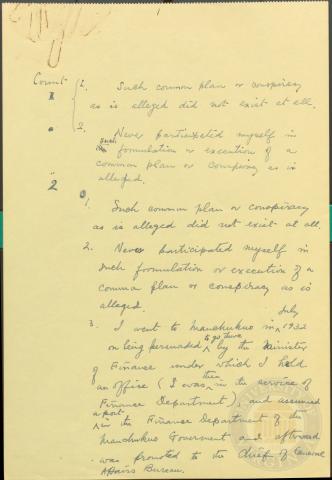 Count 1. Such common plan or conspiracy
1 as is alleged did not exist at all.
" 2. Never participated myself in
such formulation or execution of a
common plan or conspiracy as is
alleged.
" 2
1. Such common plan or conspiracy
as is alleged did not exist at all.
2. Never participated myself in
such formulation or execution of a
common plan or conspiracy as is
alleged.
3. I went to Manchukuo in July 1932
on being persuaded to go there by the Minister
of Finance under which I held
an office (I was then in the service of
Finance Department), and assumed
a post in the Finance Department of the
Manchukuo Goverment and afterward
was promoted to the Chief of General
Affairs Bureau.